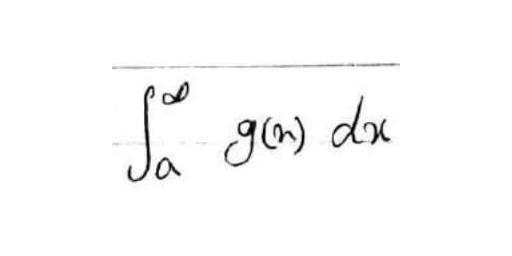 ∫_a^∞ g(x) dx